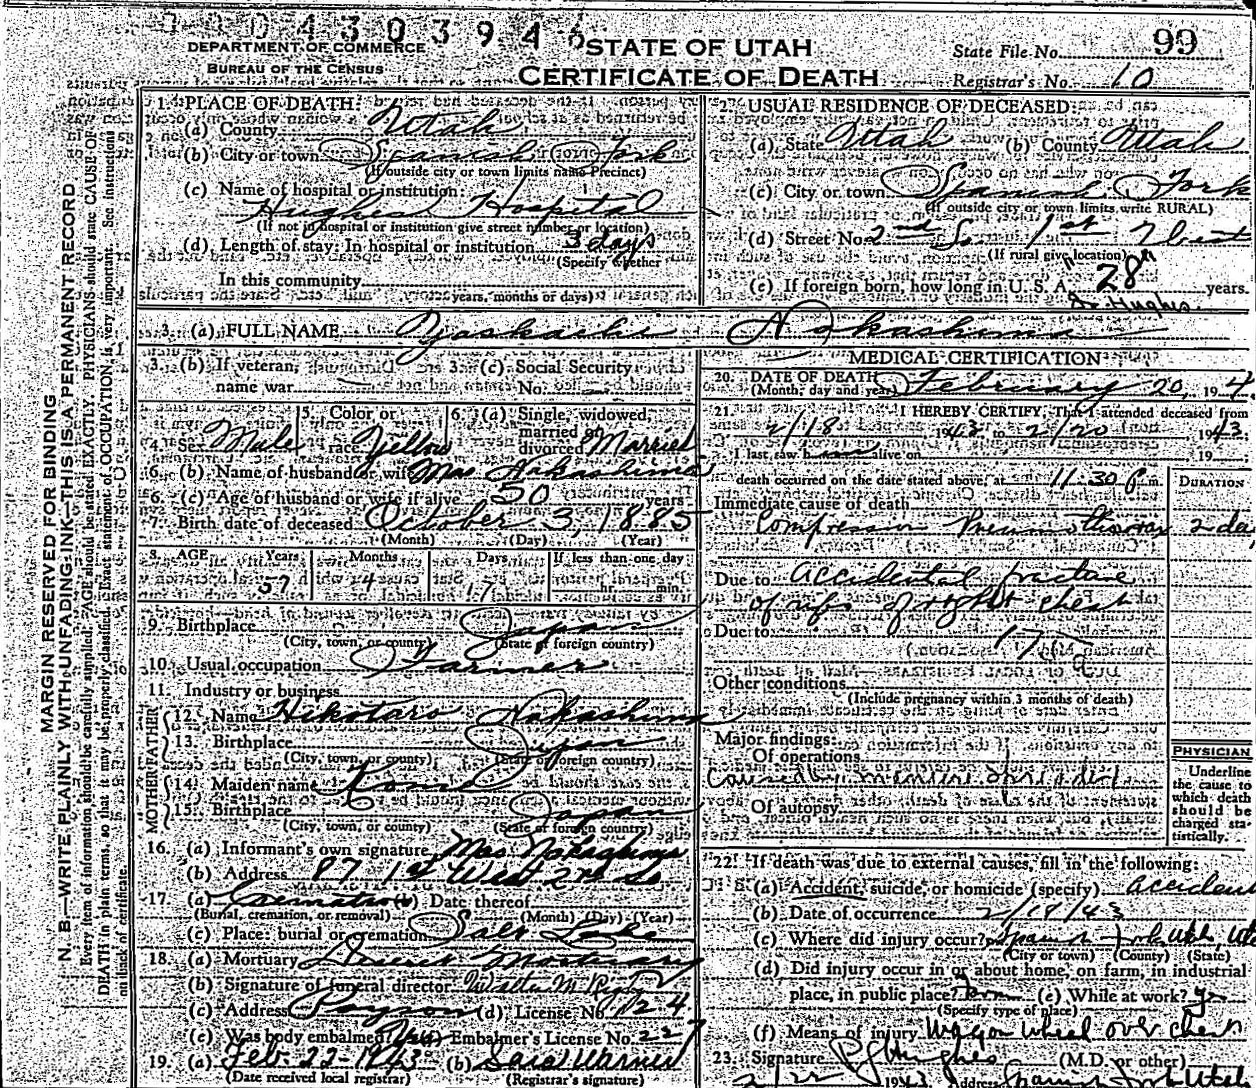 0 0 4 3 0 3 9 4 6
DEPARTMENT OF COMMERCE
BUREAU OF THE CENSUS
STATE OF UTAH
CERTIFICATE OF DEATH
State File No. 99
Registrar's No. 10
MARGIN RESERVED FOR BINDING
N. B.—WRITE PLAINLY WITH UNFADING INK—THIS IS A PERMANENT RECORD
Every item of information should be carefully supplied. AGE should be stated EXACTLY. PHYSICIANS should state CAUSE OF
DEATH in plain terms, so that it may be properly classified. Exact statement of OCCUPATION is very important. See instructions
on back of certificate.
1. PLACE OF DEATH:
(a) County Utah
(b) City or town Spanish Fork
(If outside city or town limits name Precinct)
(c) Name of hospital or institution:
Hughes Hospital
(If not in hospital or institution give street number or location)
(d) Length of stay: In hospital or institution 3 days
(Specify whether
In this community
years, months or days)
2. USUAL RESIDENCE OF DECEASED:
(a) State Utah (b) County Utah
(c) City or town Spanish Fork
(If outside city or town limits write RURAL)
(d) Street No. 2nd So. 1st West
(If rural give location)
(e) If foreign born, how long in U. S. A. "28" years.
Dr Hughes.
3. (a) FULL NAME Nakashima
3. (b) If veteran, name war
3. (c) Social Security No.
4. Sex Male
5. Color or race Yellow
6. (a) Single, widowed, married or divorced Married
6. (b) Name of husband or wife Mrs Nakashima
6. (c) Age of husband or wife if alive 50 years
7. Birth date of deceased October 3, 1885
(Month) (Day) (Year)
8. AGE Years Months Days If less than one day
57 4 17 hr. min.
9. Birthplace Japan
(City, town, or county) (State or foreign country)
10. Usual occupation Farmer
11. Industry or business
FATHER
12. Name Hikotaro Nakashima
13. Birthplace Japan
(City, town, or county) (State or foreign country)
MOTHER
14. Maiden name
15. Birthplace Japan
(City, town, or county) (State or foreign country)
16. (a) Informant's own signature Mrs. Nakashima
(b) Address 87 1st West 2nd So
17. (a) Cremation (b) Date thereof
(Burial, cremation, or removal) (Month) (Day) (Year)
(c) Place: burial or cremation Salt Lake
18. (a) Mortuary Deseret Mortuary
(b) Signature of funeral director Walter M
(c) Address Payson (d) License No. 124
(e) Was body embalmed? Yes Embalmer's License No. 227
19. (a) Feb. 22-1943 (b) Sara Warner
(Date received local registrar) (Registrar's signature)
MEDICAL CERTIFICATION
20. DATE OF DEATH February 20, 194
(Month, day and year)
21. I HEREBY CERTIFY, That I attended deceased from
2/18 1943 to 2/20, 1943.
I last saw h alive on 19
death occurred on the date stated above, at 11-30 p m.
DURATION
Immediate cause of death
Compression Pneumothorax 2 da
Due to Accidental fracture
of ribs of right chest
Due to
Other conditions
(Include pregnancy within 3 months of death)
Major findings:
Of operations
Caused by manure spreader
Of autopsy
PHYSICIAN
Underline
the cause to
which death
should be
charged sta-
tistically.
22. If death was due to external causes, fill in the following:
(a) Accident, suicide, or homicide (specify) accident
(b) Date of occurrence 2/18/43
(c) Where did injury occur? Spanish Fork Utah Ut
(City or town) (County) (State)
(d) Did injury occur in or about home, on farm, in industrial
place, in public place? Farm (e) While at work? yes
(Specify type of place)
(f) Means of injury Wagon wheel over chest
23. Signature Hughes (M.D. or other)
2/22 1943 Address Spanish Fork Utah